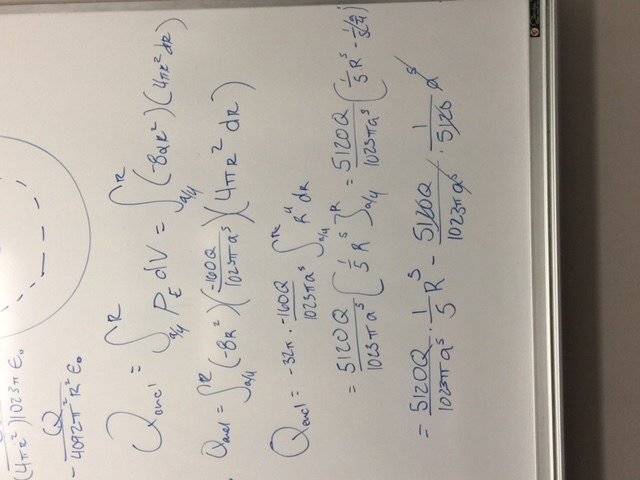 (4πR²)1023π ε₀
- Q/4092π²R²ε₀
Qencl = ∫_{a/4}^{R} ρ_E dV = ∫_{a/4}^{R} (-8αR²)(4πR² dR)
Qencl = ∫_{a/4}^{R} (-8R²)(-160Q/1023πa⁵)(4πR² dR)
Qencl = -32π · -160Q/1023πa⁵ ∫_{a/4}^{R} R⁴ dR
= 5120Q/1023πa⁵ (1/5 R⁵ ]_{a/4}^{R} = 5120Q/1023πa⁵ (1/5 R⁵ -
= 5120Q/1023πa⁵ · 1/5 R⁵ - 5120Q/1023πa⁵ · 1/5120 a⁵